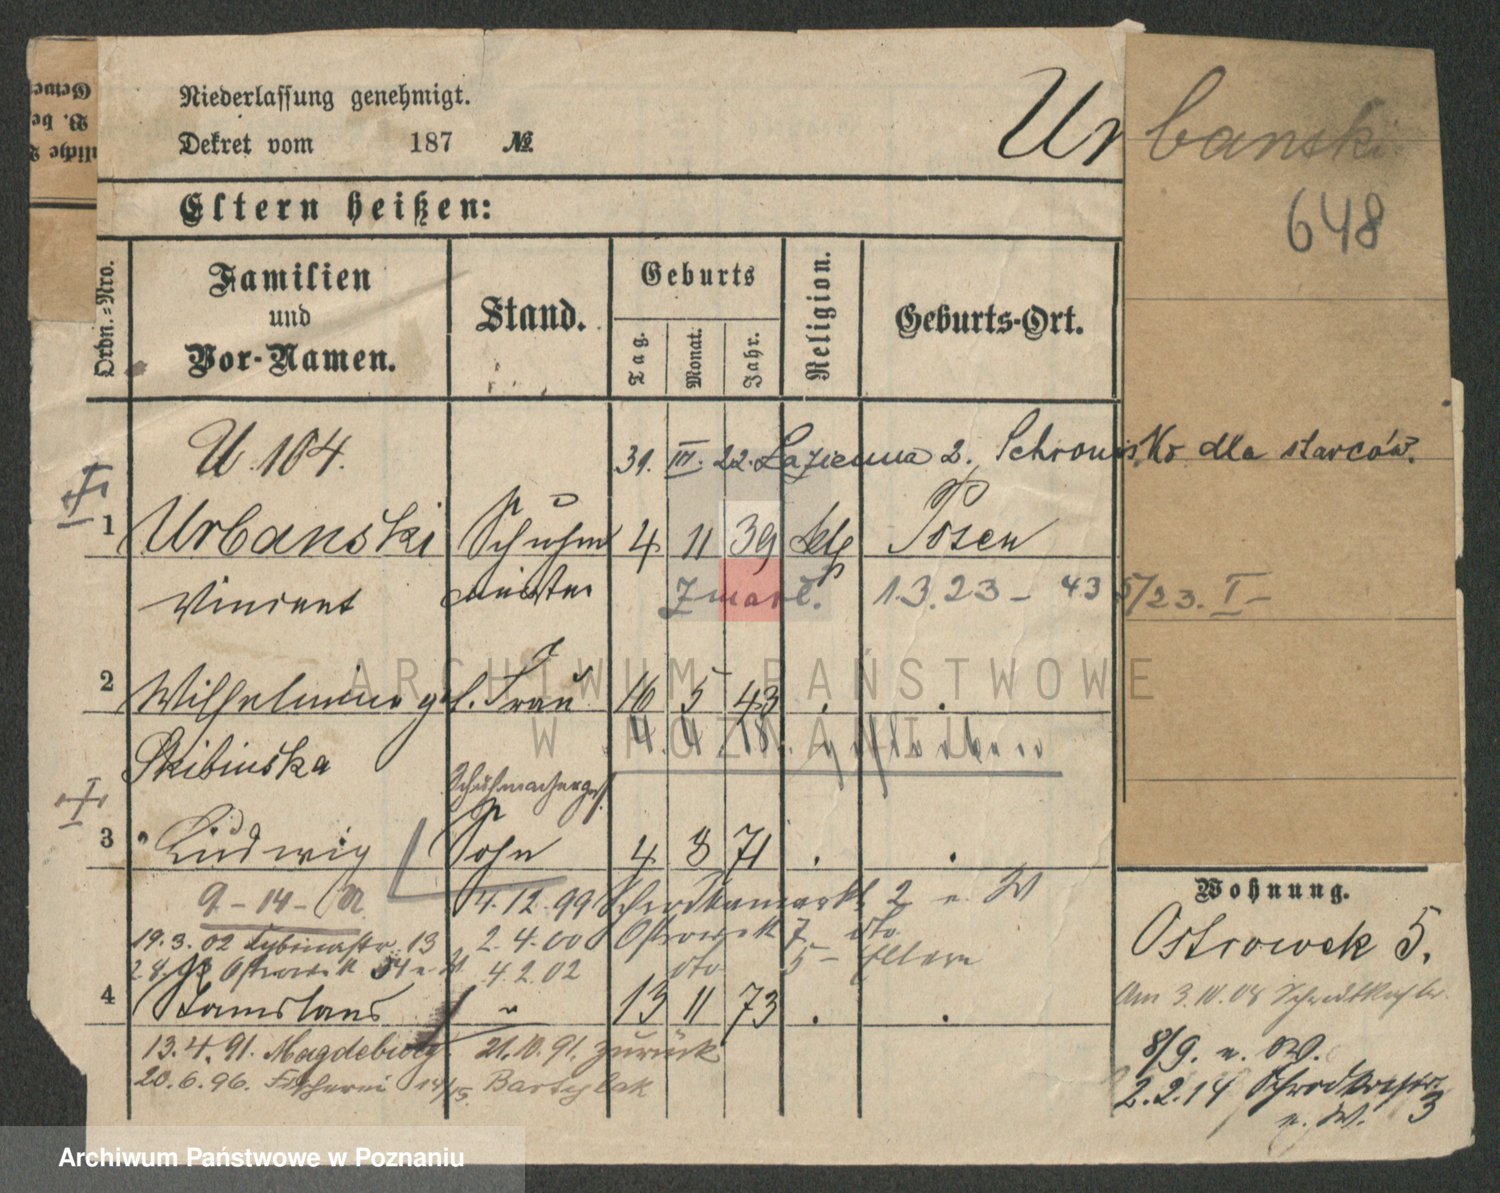 Niederlassung genehmigt.
Dekret vom 187 №
Urbanski
648
Eltern heißen:
Ordn.-Nro.
Familien
und
Vor-Namen.
Stand.
Geburts
Tag.
Monat.
Jahr.
Religion.
Geburts-Ort.
U. 104.
31. III. 22. Łazienna 2. Schronisko dla starców.
1 Urbanski Schuhm 4 11 39 kth Posen
Vincent meister Zmarł. 1.3.23 - 43 5/23. I -
2 Wilhelmine geb. Frau 16 5 43 . .
4. 4. 18. gestorben
Skibinska
Schuhmacherges.
3 Ludwig Sohn 4 8 71 . .
9-14-
4.12.99 Schrodkamarkt 2 n. W
19.3.02 13 2.4.00 Ostrowek 7 dto
Ostrowek n. W. 4.2.02 dto 5 - Eltern
4 Stanislaus " 13 11 73 . .
13.4.91. Magdeburg 21.10.91. zurück
20.6.96. 14/15.
Wohnung.
Ostrowek 5.
Am 3.10.08
8/9. n. W.
2.2.14 3
n. W.
ARCHIWUM PAŃSTWOWE
W POZNANIU
Archiwum Państwowe w Poznaniu